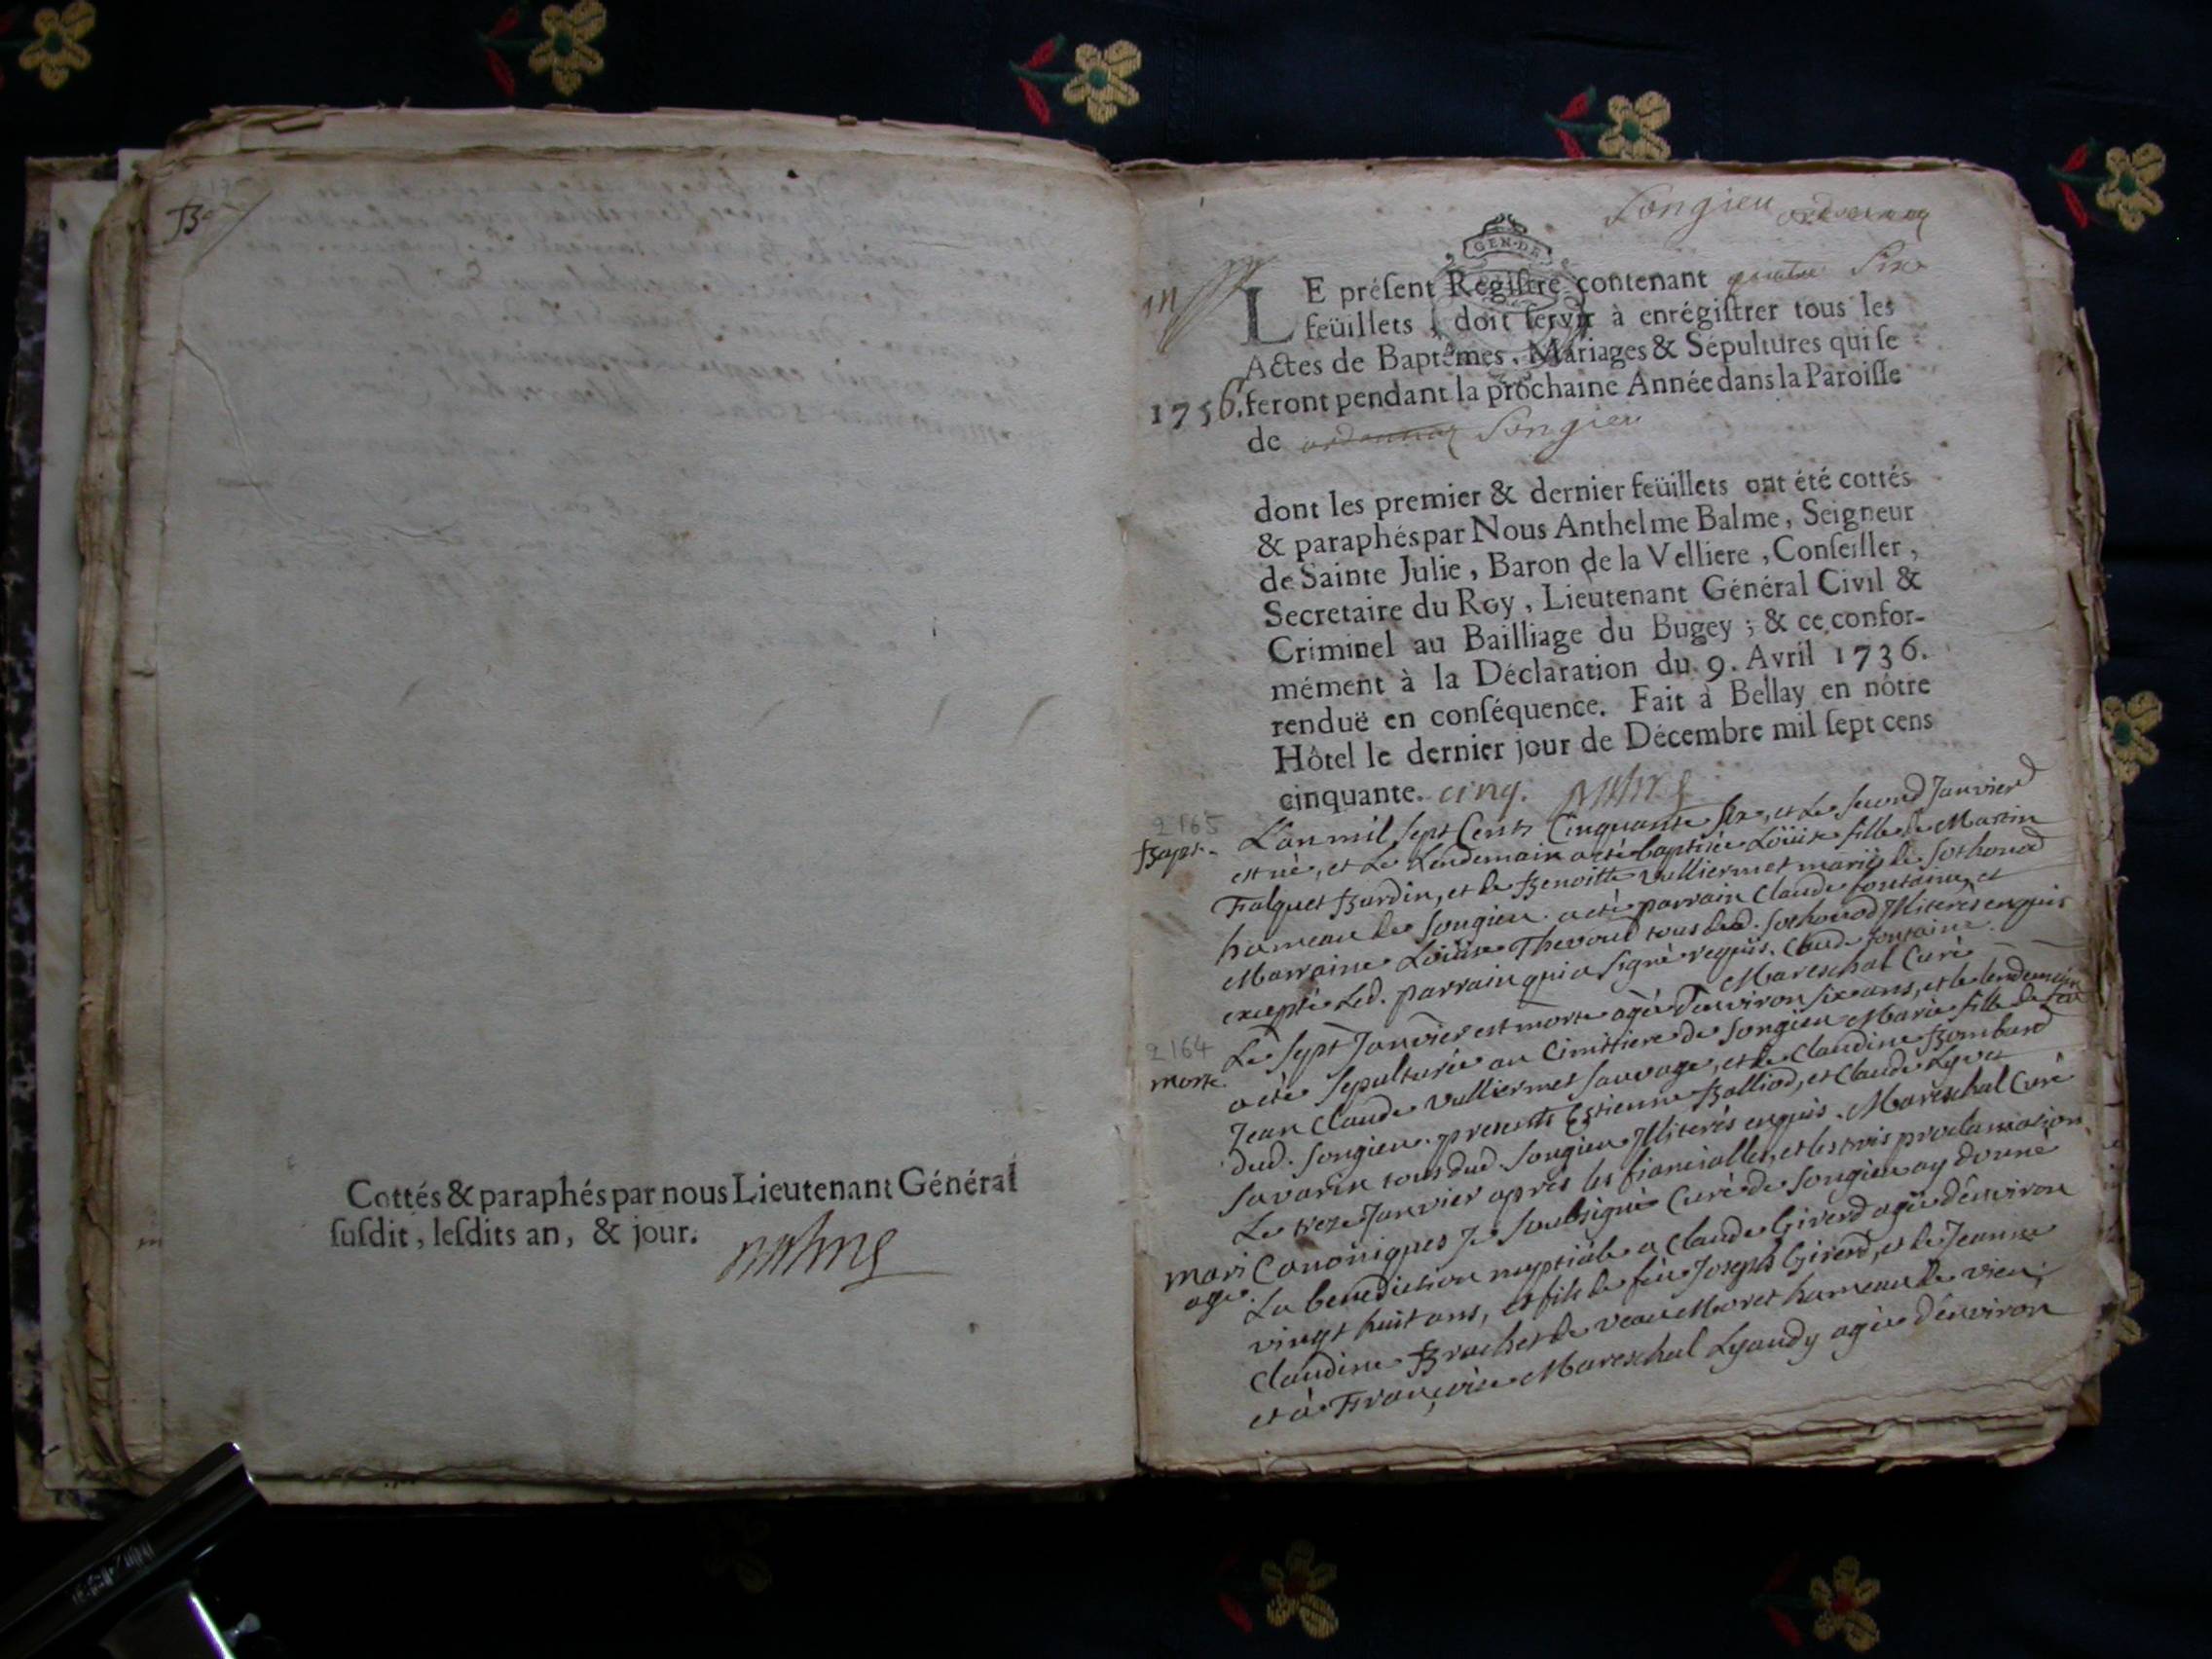 Cottés & paraphés par nous Lieutenant Général
ſuſdit, leſdits an, & jour.
Songieu
GEN·DE
LE préſent Regiſtre contenant Six
feüillets doit ſervir à enrégiſtrer tous les
Actes de Baptêmes, Mariages & Sépultures qui ſe
1756. feront pendant la prochaine Année dans la Paroiſſe
de Songieu
dont les premier & dernier feüillets ont été cottés
& paraphés par Nous Anthelme Balme, Seigneur
de Sainte Julie, Baron de la Velliere, Conſeiller,
Secretaire du Roy, Lieutenant Général Civil &
Criminel au Bailliage du Bugey ; & ce confor-
mément à la Déclaration du 9. Avril 1736.
renduë en conſéquence. Fait à Bellay en nôtre
Hôtel le dernier jour de Décembre mil ſept cens
cinquante. cinq.
2165
Bapt. L'an mil sept Cents Cinquante six, et le second Janvier
est né, et le Lendemain a été baptisée Loüise fille de Martin
Falquet Bardin, et de Benoitte Vulliermet mariés de Sothonod
hameau de Songieu. a été parrain Claude fontaine, et
Marraine Loüise Thevoud tous dud. Sothonod Illiteres enquis
excepté led. parrain qui a signé requis. Claude fontaine.
Mareschal Curé
2164
morte. Le sept Janvier est morte agée d'environ six ans, et le lendemain
a été sepulturée au Cimittiere de Songieu Marie fille de feu
Jean Claude Vulliermet Sauvage, et de Claudine Bombard
dud. Songieu. presents Estienne Balliod, et Claude Lyvet
Savarin tous dud. Songieu Illiterés enquis. Mareschal Curé
Le treze Janvier apres les fiancialles, et les trois proclamation
mari Canoniques Je Soubsigné Curé de Songieu ay donné
age. La benediction nuptiale a Claude Girerd agé d'environ
vingt huit ans, et fils de feu Joseph Girerd, et de Jeanne
Claudine Brachet de Veau Moret hameau de vieu;
et à Françoise Mareschal Lyaudy agée d'environ